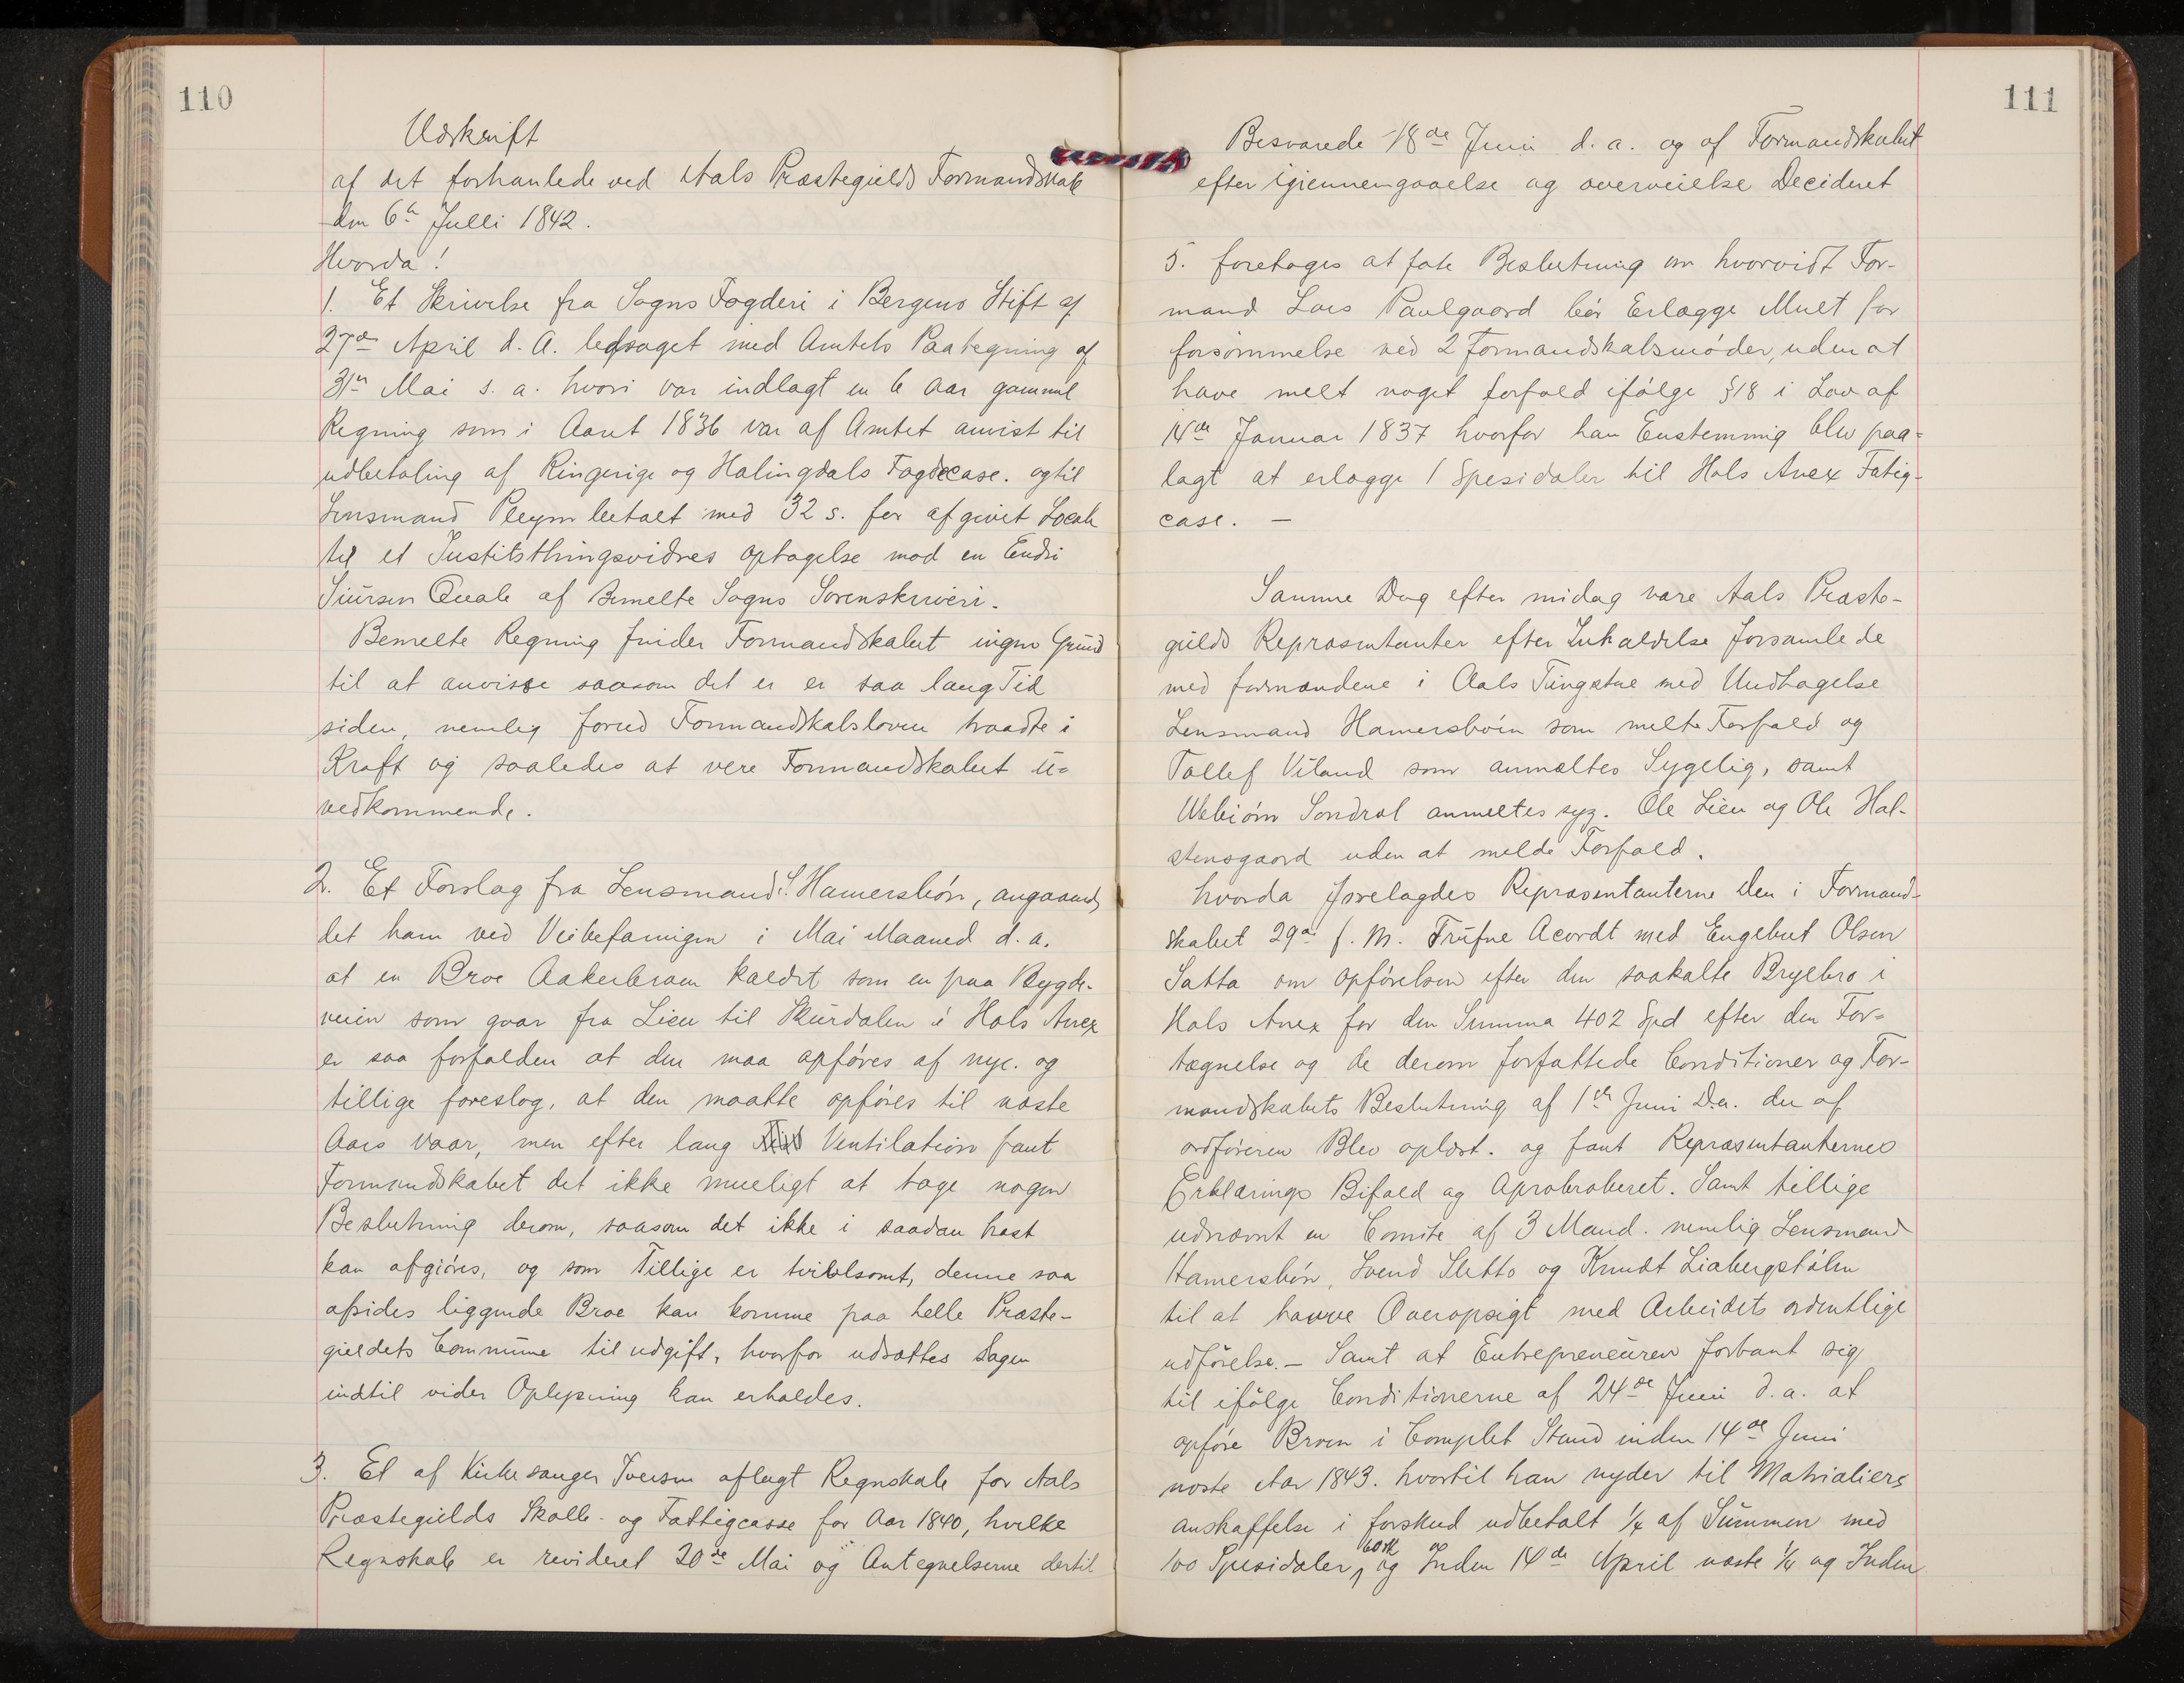 110
Udskrift
af det forhanlede ved Aals Præstegields Formandskab
den 6te Julli 1842.
Hvorda!
1. Et Skrivelse fra Sogns Fogderi i Bergens Stift af
27de April d. A. ledsaget med Amtets Paategning af
31te Mai s. a. hvori var indlagt en 6 aar gammel
Regning som i Aaret 1836 var af Amtet anvist til
udbetaling af Ringerige og Halingdals Fogdecase. og til
Lensmand betalt med 32 s. for afgivet Locale
til et Justitsthingsvidnes optagelse mod en Endri
Siursen Quale af Bemelte Sogns Sorenskriveri.
Bemelte Regning finder Formandskabet ingen Grund
til at anvisse saasom det er er saa lang Tid
siden, nemlig forud Formandskabsloven traadte i
Kraft og saaledes at vere Formandskabet u=
vedkommende.
2. Et Forslag fra Lensmand S. Hamersbön, angaaende
det ham ved Veibefaringen i Mai Maaned d. a.
at en Broe Aakerbroen kaldet som er paa Bygde-
veien som gaar fra Lien til Skurdalen i Hols Anex
er saa forfalden at den maa opföres af nye. og
tillige foreslog, at den maatte opföres til næste
Aars Vaar, men efter lang Ventilation fant
Formandskabet det ikke mueligt at tage nogen
Beslutning derom, saasom det ikke i saadan hast
kan afgiöres, og som Tillige er tvilsomt, denne saa
afsides liggende Broe kan komme paa helle Præste-
gieldets Commune til udgift, hvorfor udsættes Sagen
indtil vider Oplysning kan erholdes.
3. Et af Kirkesanger Iversen aflagt Regnskab for Aals
Præstegields Skolle- og Fattigcasse for Aar 1840, hvilke
Regnskab er revideret 20de Mai og Antegnelserne dertil
111
Besvarede 18de Juni d. a. og af Formandskabet
efter igiennemgaaelse og overveielse Decideret
5. foretages at fate Beslutning om hvorvidt For-
mand Lars Paulgaard bör Erlægge Mult for
forsömmelse ved 2 Formandskabsmöder, uden at
have melt noget forfald ifölge §18 i Lov af
14de Januar 1837 hvorfor han Enstemmig blev paa-
lagt at erlægge 1 Spesidaler til Hols Anex Fatig-
case. —
Samme Dag efter midag vare Aals Præste-
gields Repræsentanter efter Inkaldelse forsamlede
med formændene i Aals Tingstue med Undtagelse
Lensmand Hamersböin som melte Forfald og
Tollef Viland som anmæltes Sygelig, samt
Webiörn Sondrol anmeltes syg. Ole Lien og Ole Hal-
stensgaard uden at melde Forfald.
hvorda forelagdes Repræsentanterne den i Formand-
skabet 29de f. M. Trufne Acordt med Engebret Olsen
Satta om opförelsen efter den saakalte Bryebro i
Hols Anex for den Summa 402 Spd efter den For-
tægnelse og de derom forfattede Conditioner og For-
mandskabets Beslutning af 1te Juni D.a. der af
ordföreren Blev oplæst. og fant Repræsentanternes
Erklærings Bifald og Aprobroberet. Samt tillige
udnævnt en Comite af 3 Mand. nemlig Lensmand
Hamersbön, Svend Sletto og Knudt Liabergstölen
til at havve Overopsigt med Arbeidets ordentlige
udförelse. — Samt at Entrepreneuren forbant sig
til ifölge Conditionerne af 24de Juni d. a. at
opföre Broen i Complet Stand inden 14de Juni
næste Aar 1843. hvortil han nyder til Matrialiers
anskaffelse i forskud udbetalt 1/4 af Summen med
100 Spesidaler, 60 sk og Inden 14de April næste 1/4 og Inden